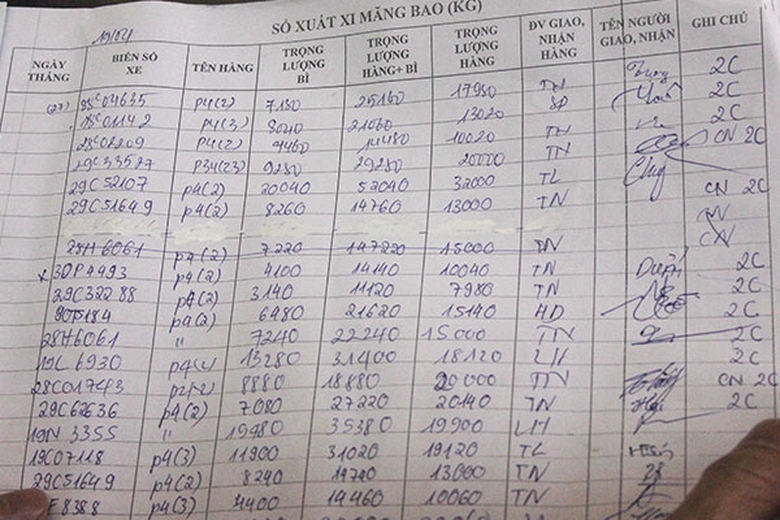 19/04 SỔ XUẤT XI MĂNG BAO (KG)
NGÀY THÁNG BIỂN SỐ XE TÊN HÀNG TRỌNG LƯỢNG BÌ TRỌNG LƯỢNG HÀNG+ BÌ TRỌNG LƯỢNG HÀNG ĐV GIAO, NHẬN HÀNG TÊN NGƯỜI GIAO, NHẬN GHI CHÚ
(27) 28C04635 P4(2) 7180 25160 17980 TN 2C
28C01142 P4(3) 8040 21060 13020 SP 2C
28C02209 P4(2) 4460 14480 10020 TN 2C
29C33527 P34(23) 9280 29280 20000 TN CN 2C
29C52107 P4(2) 20040 52040 32000 TL
29C51649 P4(2) 8260 14760 13000 TN CN 2C
28H6061 P4(2) 7220 147220 15000 TN CN
x 30P4993 P4(2) 4100 14140 10040 TN 2C
29C32288 P4(2) 3140 11120 7980 TN 2C
P4(2) 6480 21620 15140 HD 2C
28H6061 " 7240 22240 15000 TN 2C
19L6930 13280 31400 18120 LH 2C
28C01743 8880 18880 20000 TN CN 2C
29C62636 P4(2) 7080 27220 20140 TN 2C
19N 3355 " 15480 35380 19900 LH
19C07118 P4(3) 11900 31020 19120 TL
29C51649 P4(2) 8240 13000 TN
8388 P4(3) 4400 14460 10060 TN